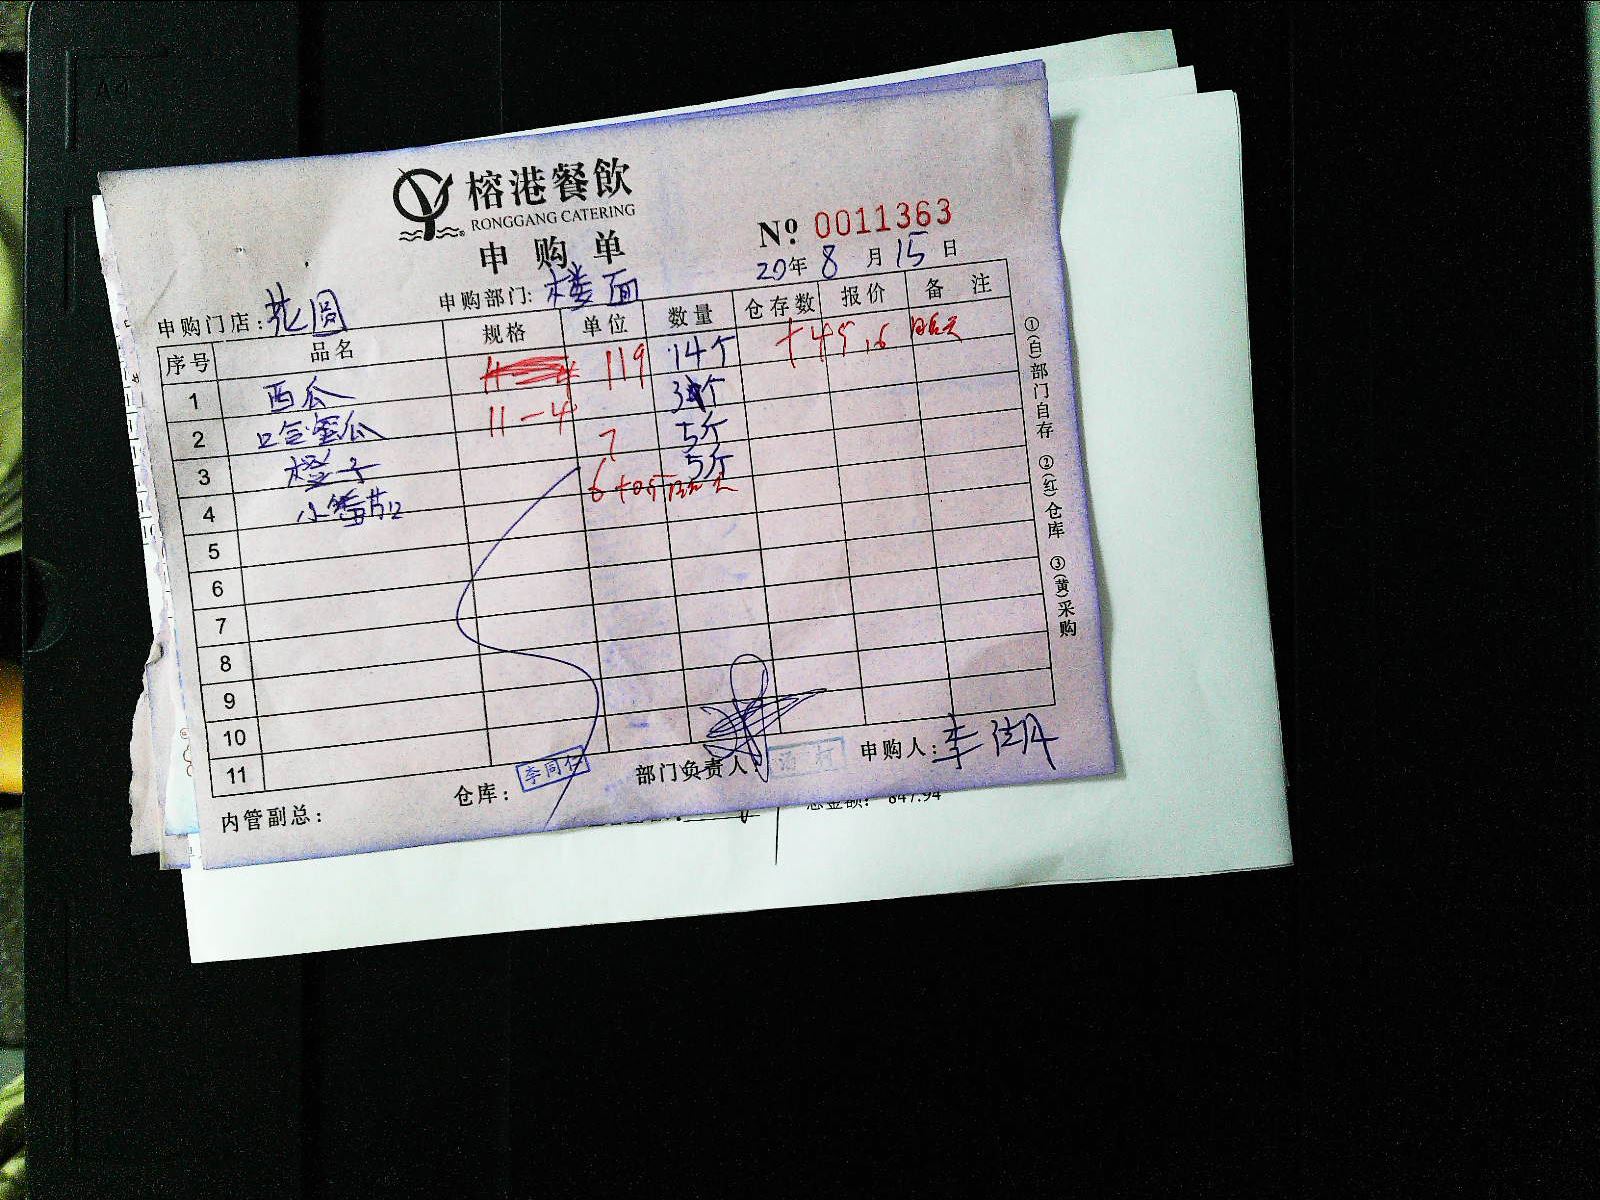 A4
榕港餐飲
RONGGANG CATERING
申购单
№ 0011363
20年 8 月 15 日
申购门店: 花园 申购部门: 楼面
序号 品名 规格 单位 数量 仓存数 报价 备注
1 西瓜 119 14个 +45.6
2 哈蜜瓜 11-4 3个
3 橙子 7 5斤
4 小番茄 6 5斤
5
6
7
8
9
10
11
内管副总: 仓库: 李同仁 部门负责人: 申购人: 李
①(白)部门自存 ②(红)仓库 ③(黄)采购
总金额: 847.94